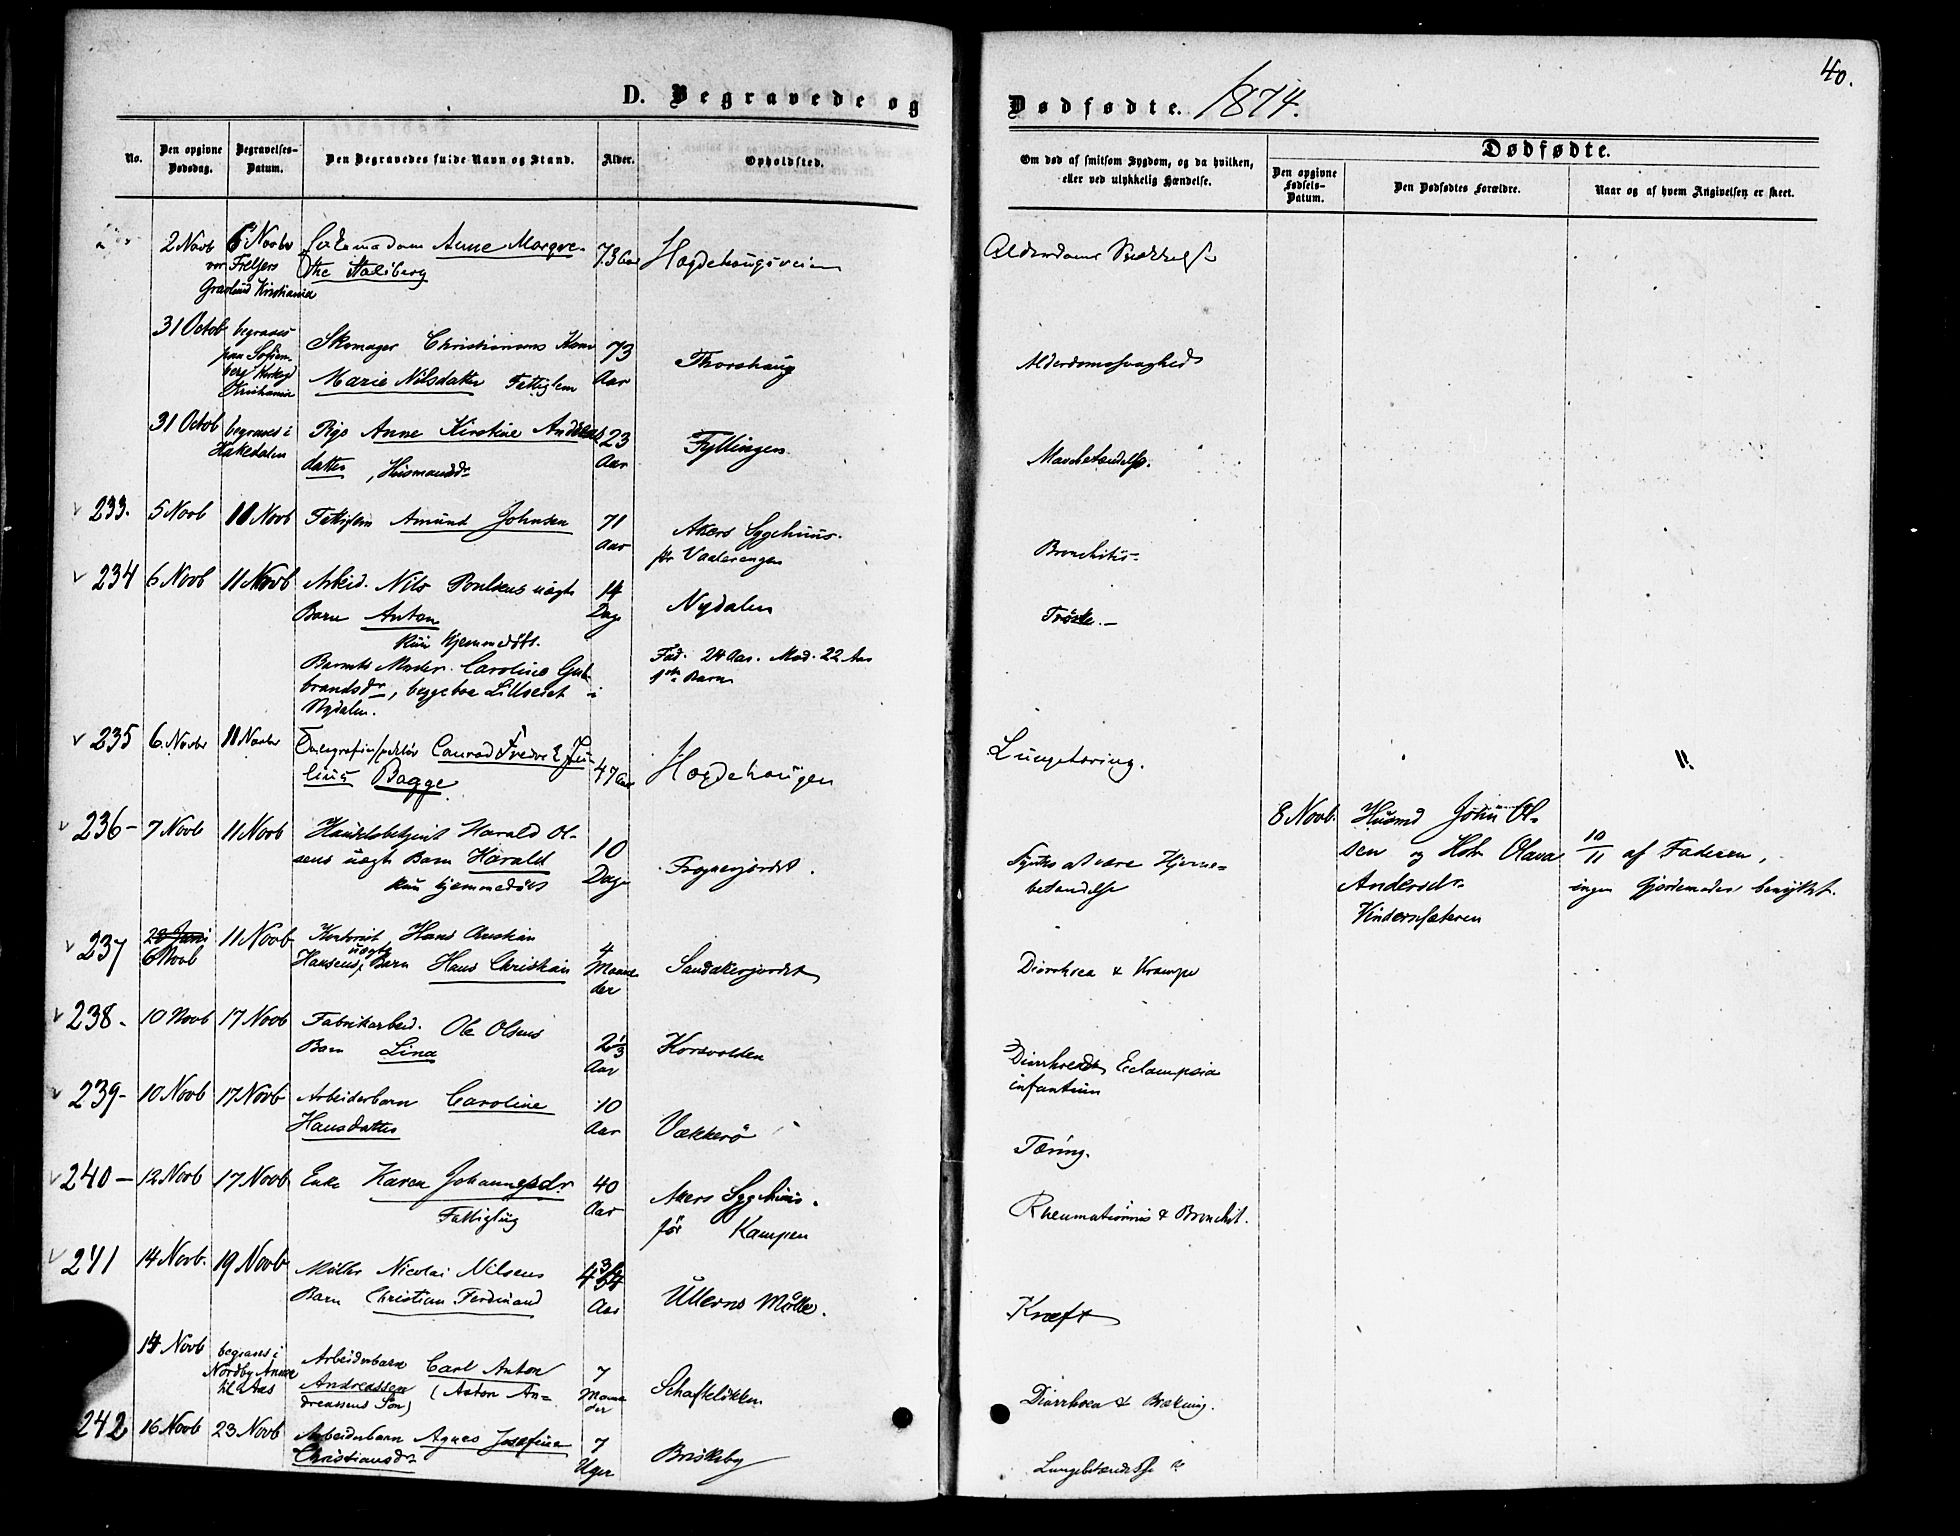 40.
D. Begravede og
Dødfødte. 1874.
No.
Den opgivne Dødsdag.
Begravelses-Datum.
Den Begravedes fulde Navn og Stand.
Alder.
Opholdsted.
Om død af smitsom Sygdom, og da hvilken, eller ved ulykkelig Hændelse.
Dødfødte.
Den opgivne Fødsels-Datum.
Den Dødfødtes Forældre.
Naar og af hvem Angivelsen er skeet.
2 Novb 6 Novbr Anne Margre- 73 Aar Hægdehaugsveien
vor Frelsers the
Gravlund Kristiania
31 Octob begraves Skomager Christiansens Kone 73 Thorshaug Alderdomssvaghed
paa Sofien-
berg Kirkegd Marie Nilsdatter Fattiglem Aar
Kristiania
31 Octob begraves i Pige Anne Kirstine Andreas 23 Fyllingen
Hakedalen datter, Husmandsdr Aar Mavebetændelse.
233. 5 Novb 10 Novb Fattiglem Amund Johnsen 71 Akers Sygehuus.
Aar før Vaalerengen Bronchitis
234 6 Novb 11 Novb Arbeid. Nils Poulsens uægte 14 Nydalen
Barn Anton Dage Trøske.
kun hjemmedøbt.
Barnets Moder. Caroline Gul- Fad. 24 Aar. Mod. 22 Aar
brandsdr, begge boe Lillseiet i 1ste Barn
Nydalen.
235 6 Novbr 11 Novbr Conrad Fredrik Ju- 47 Aar Hægdehaugen Lungetæring. "
lius Bagge.
236- 7 Novb 11 Novb Handelsbetjent Harald Ol- 10 Frognerjordet. 8 Novb. Husmd John Ol-
sens uægte Barn Harald Dage Synes at være Hjerne- sen og Hstr Olava 10/11 af Faderen,
kun hjemmedøbt betændelse Andersdr. ingen Gjordemoder benyttet.
Kindernsæteren
237 28 Juni 11 Novb Kontorist Hans Christian 4
6 Novb Hansens uægte Barn Hans Christian Maane- Sandakerjordet Diarrhoea & Krampe
der
238. 10 Novb 17 Novb Fabrikarbeid. Ole Olsens 2 1/3 Korsvolden
Barn Lina Aar Eclampsia
infantum
239- 10 Novb 17 Novb Arbeiderbarn Caroline 10
Hansdatter Aar Vækkerö Tæring.
240- 12 Novb 17 Novb Enke Karen Johannesdr. 40 Akers Sygehuus.
Fattiglig Aar för Kampen Rheumatismus & Bronchit.
241 14 Novb. 19 Novb Møller Nicolai Nilsens 4 3/4
Barn Christian Ferdinand Aar Ullerns Mølle. Kræft
14 Novb begraves i Arbeiderbarn Carl Anton 7 Schafteløkken
Nordby Annex Andreassen (Anton An- Maane Diarrhoea & Brækning.
til Aas dreassens Søn) der
242 16 Novb 23 Novb Arbeiderbarn Agnes Josefine 7 Briskeby
Christiansdr Uger Lungebetændelse